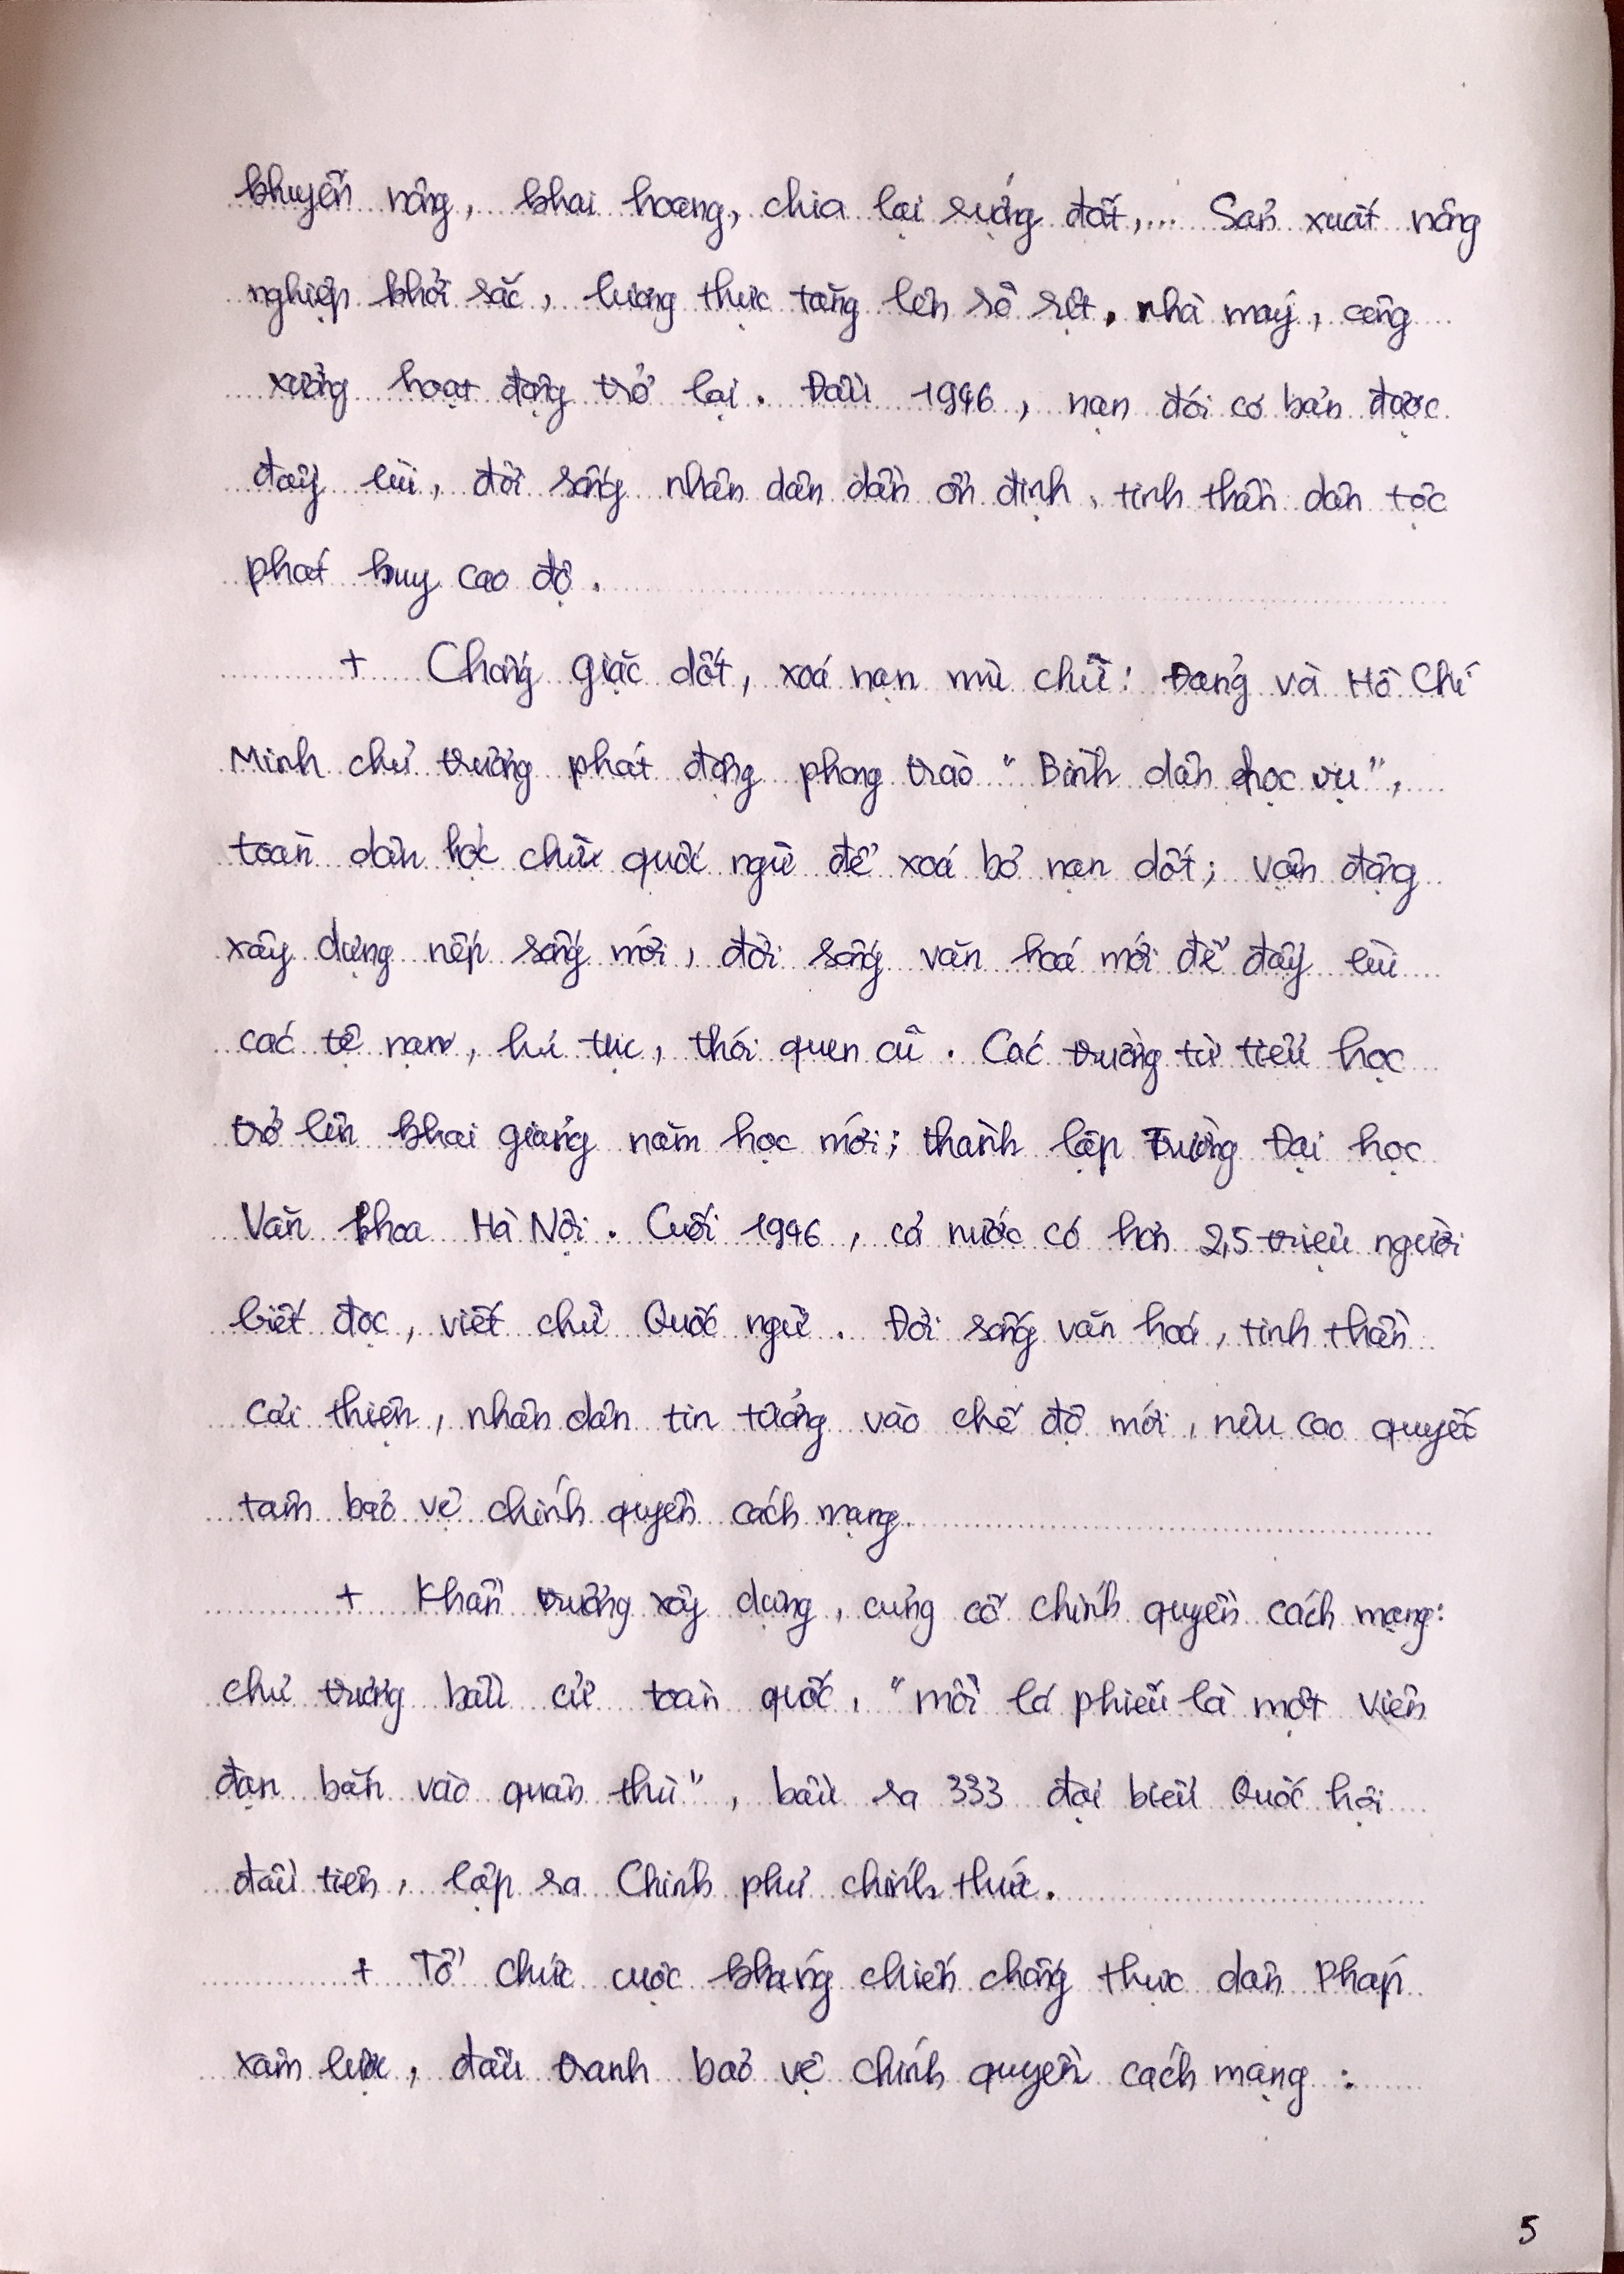 khuyến nông, khai hoang, chia lại ruộng đất,... Sản xuất nông
nghiệp khởi sắc, lương thực tăng lên rõ rệt, nhà máy, công
xưởng hoạt động trở lại. Đầu 1946, nạn đói cơ bản được
đẩy lùi, đời sống nhân dân dần ổn định, tinh thần dân tộc
phát huy cao độ.
+ Chống giặc dốt, xoá nạn mù chữ: Đảng và Hồ Chí
Minh chủ trương phát động phong trào "Bình dân học vụ",
toàn dân học chữ quốc ngữ để xoá bỏ nạn dốt; vận động
xây dựng nếp sống mới, đời sống văn hoá mới để đẩy lùi
các tệ nạn, hủ tục, thói quen cũ. Các trường từ tiểu học
trở lên khai giảng năm học mới; thành lập Trường Đại học
Văn khoa Hà Nội. Cuối 1946, cả nước có hơn 2,5 triệu người
biết đọc, viết chữ Quốc ngữ. Đời sống văn hoá, tinh thần
cải thiện, nhân dân tin tưởng vào chế độ mới, nêu cao quyết
tâm bảo vệ chính quyền cách mạng.
+ Khẩn trương xây dựng, củng cố chính quyền cách mạng:
chủ trương bầu cử toàn quốc, "mỗi lá phiếu là một viên
đạn bắn vào quân thù", bầu ra 333 đại biểu Quốc hội
đầu tiên, lập ra Chính phủ chính thức.
+ Tổ chức cuộc kháng chiến chống thực dân Pháp
xâm lược, đấu tranh bảo vệ chính quyền cách mạng :
5